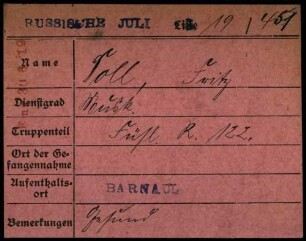 RUSSISCHE JULI Liste 19 / 451
Name Toll, Fritz
Dienstgrad Musk.
Truppenteil Füsl. R. 122.
Ort der Ge-
fangennahme
Aufenthalts-
ort BARNAUL
Bemerkungen Gesund